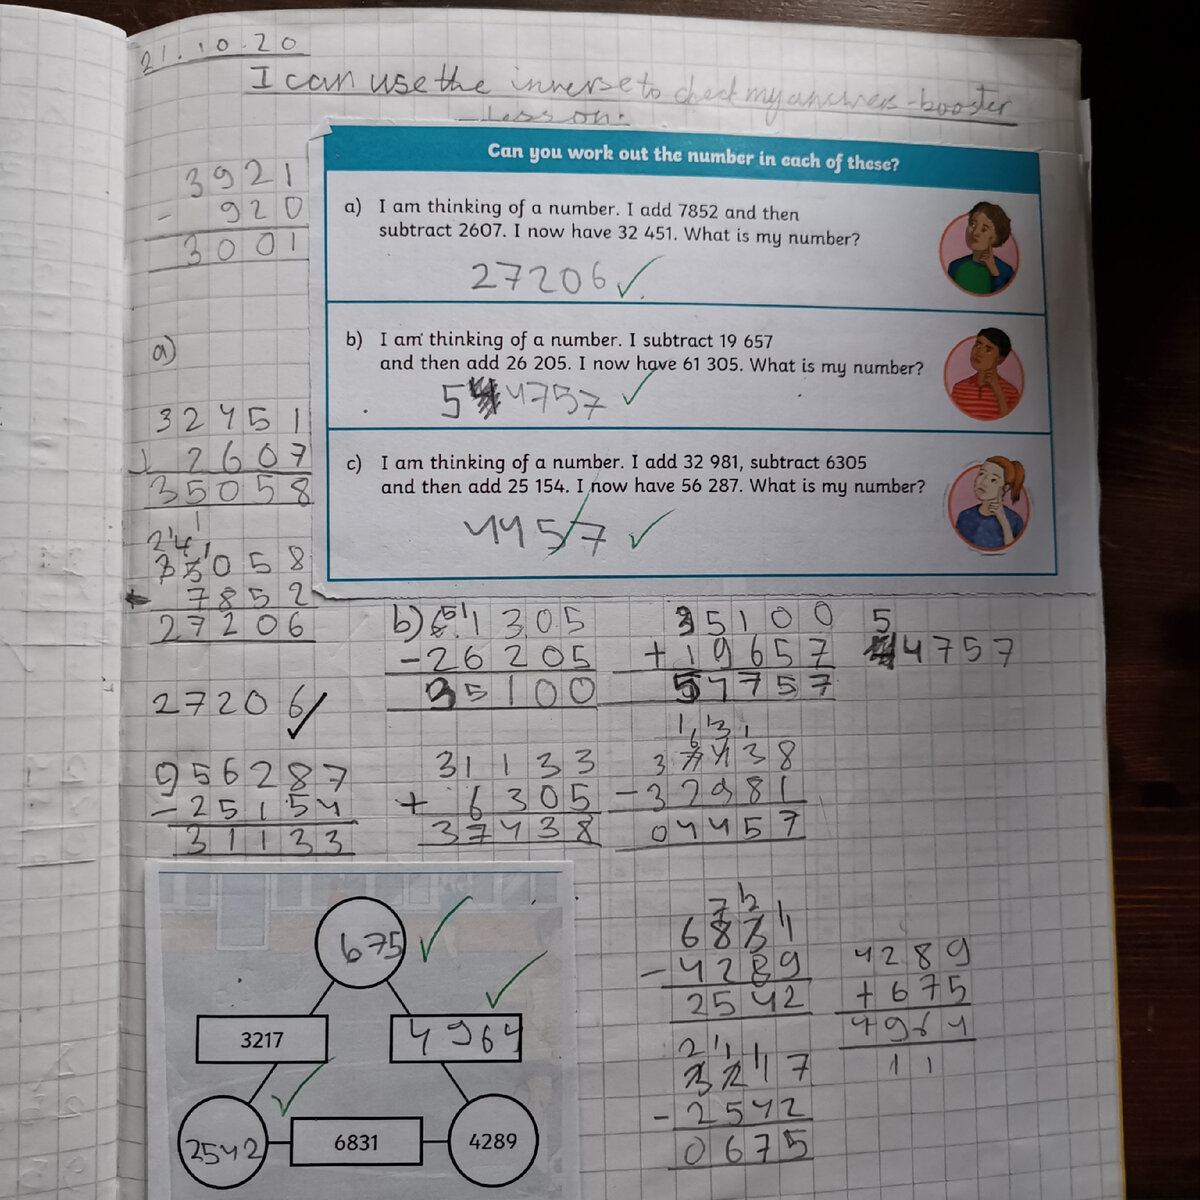 21.10.20
I can use the inverse to check my answers - booster
lesson.
3921
- 920
3001
Can you work out the number in each of these?
a) I am thinking of a number. I add 7852 and then
subtract 2607. I now have 32 451. What is my number?
27206 ✓
b) I am thinking of a number. I subtract 19 657
and then add 26 205. I now have 61 305. What is my number?
54757 ✓
c) I am thinking of a number. I add 32 981, subtract 6305
and then add 25 154. I now have 56 287. What is my number?
4457 ✓
a)
32451
+ 2607
35058
35058
- 7852
27206
27206 ✓
b) 61305
- 26205
35100
35100
+ 19657
54757
54757
56287
- 25154
31133
31133
+ 6305
37438
37438
- 32981
04457
675 ✓
3217
4964 ✓
2542 ✓
6831
4289
6831
- 4289
2542
4289
+ 675
4964
11
3217
- 2542
0675